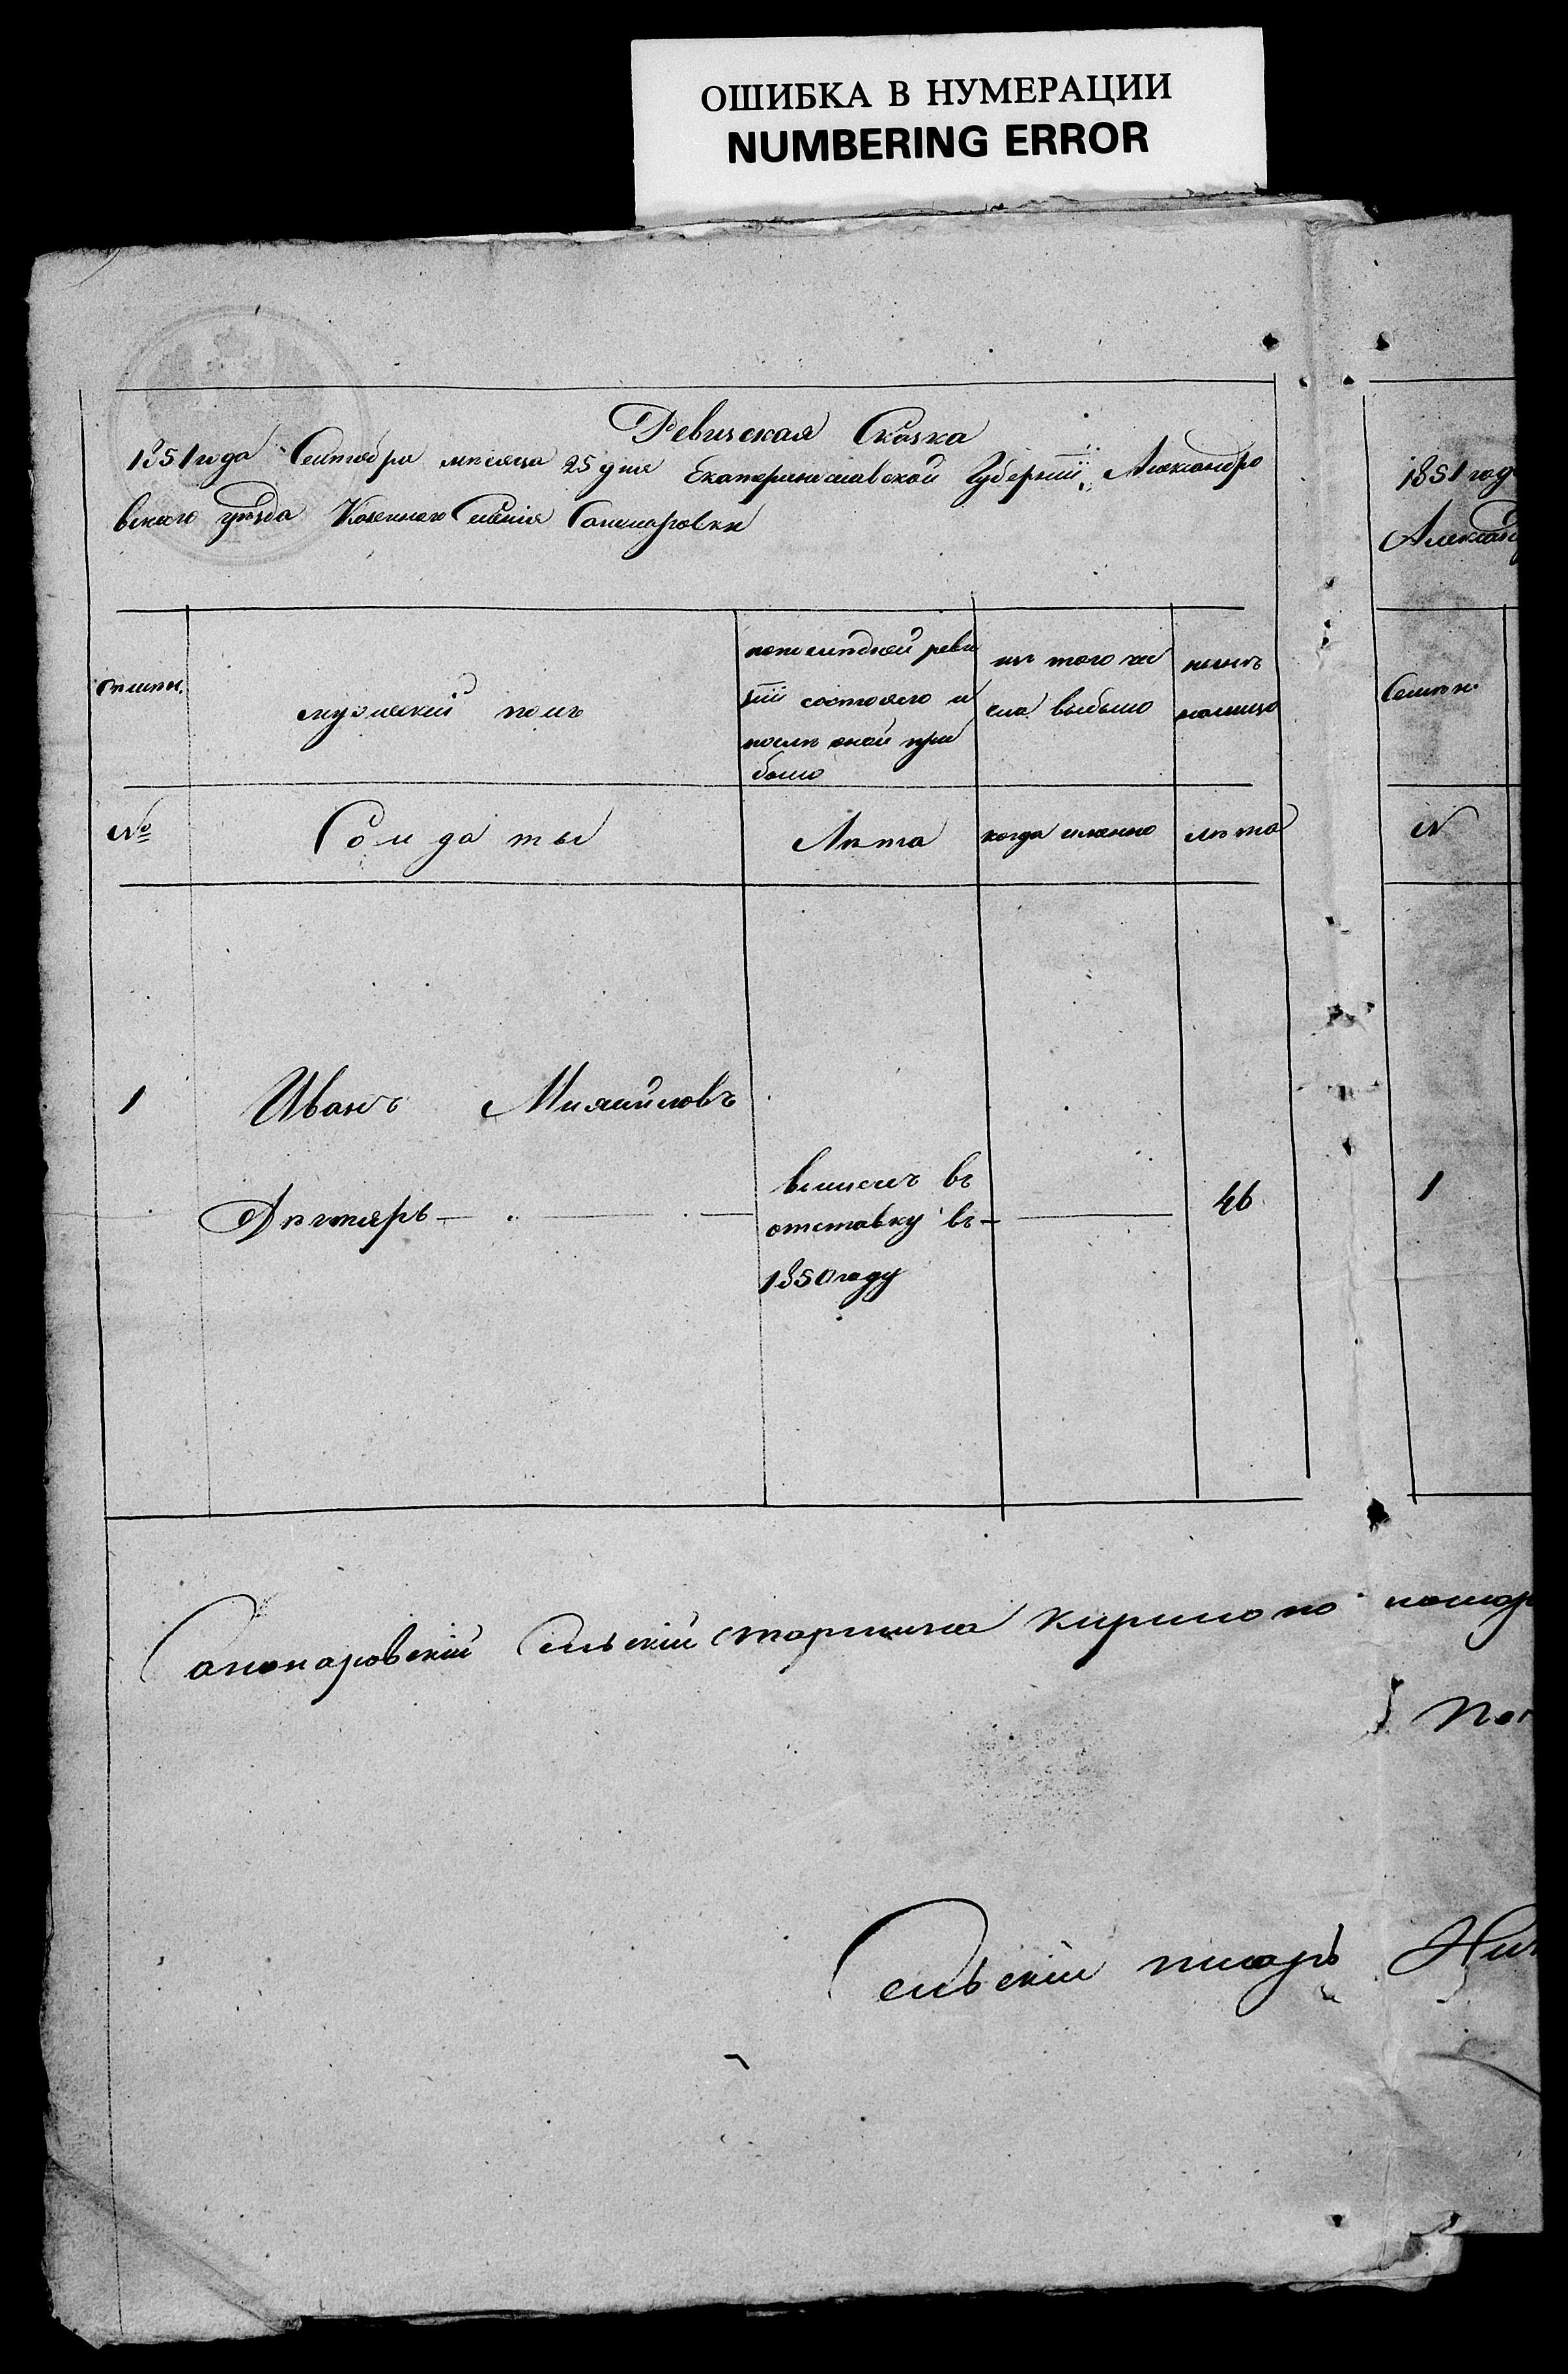 ОШИБКА В НУМЕРАЦИИ
NUMBERING ERROR
Ревизская Сказка
1851 года Сентября месяца 25 дня Екатеринославской Губернии, Александро
вского уезда Казенного Селения
мужеский полъ
последней реви
зіи состояло и
после оной при
было
изъ того чи
сла выбыло
ныне
налицо
№
Солдаты
Лета
когда именно
лета
1
Иванъ Михайловъ
вышелъ въ
отставку въ
1850 году
46
1851 год
Александ
Семьи
№
1
Сельскій старшина Кирило
Сельскій писарь